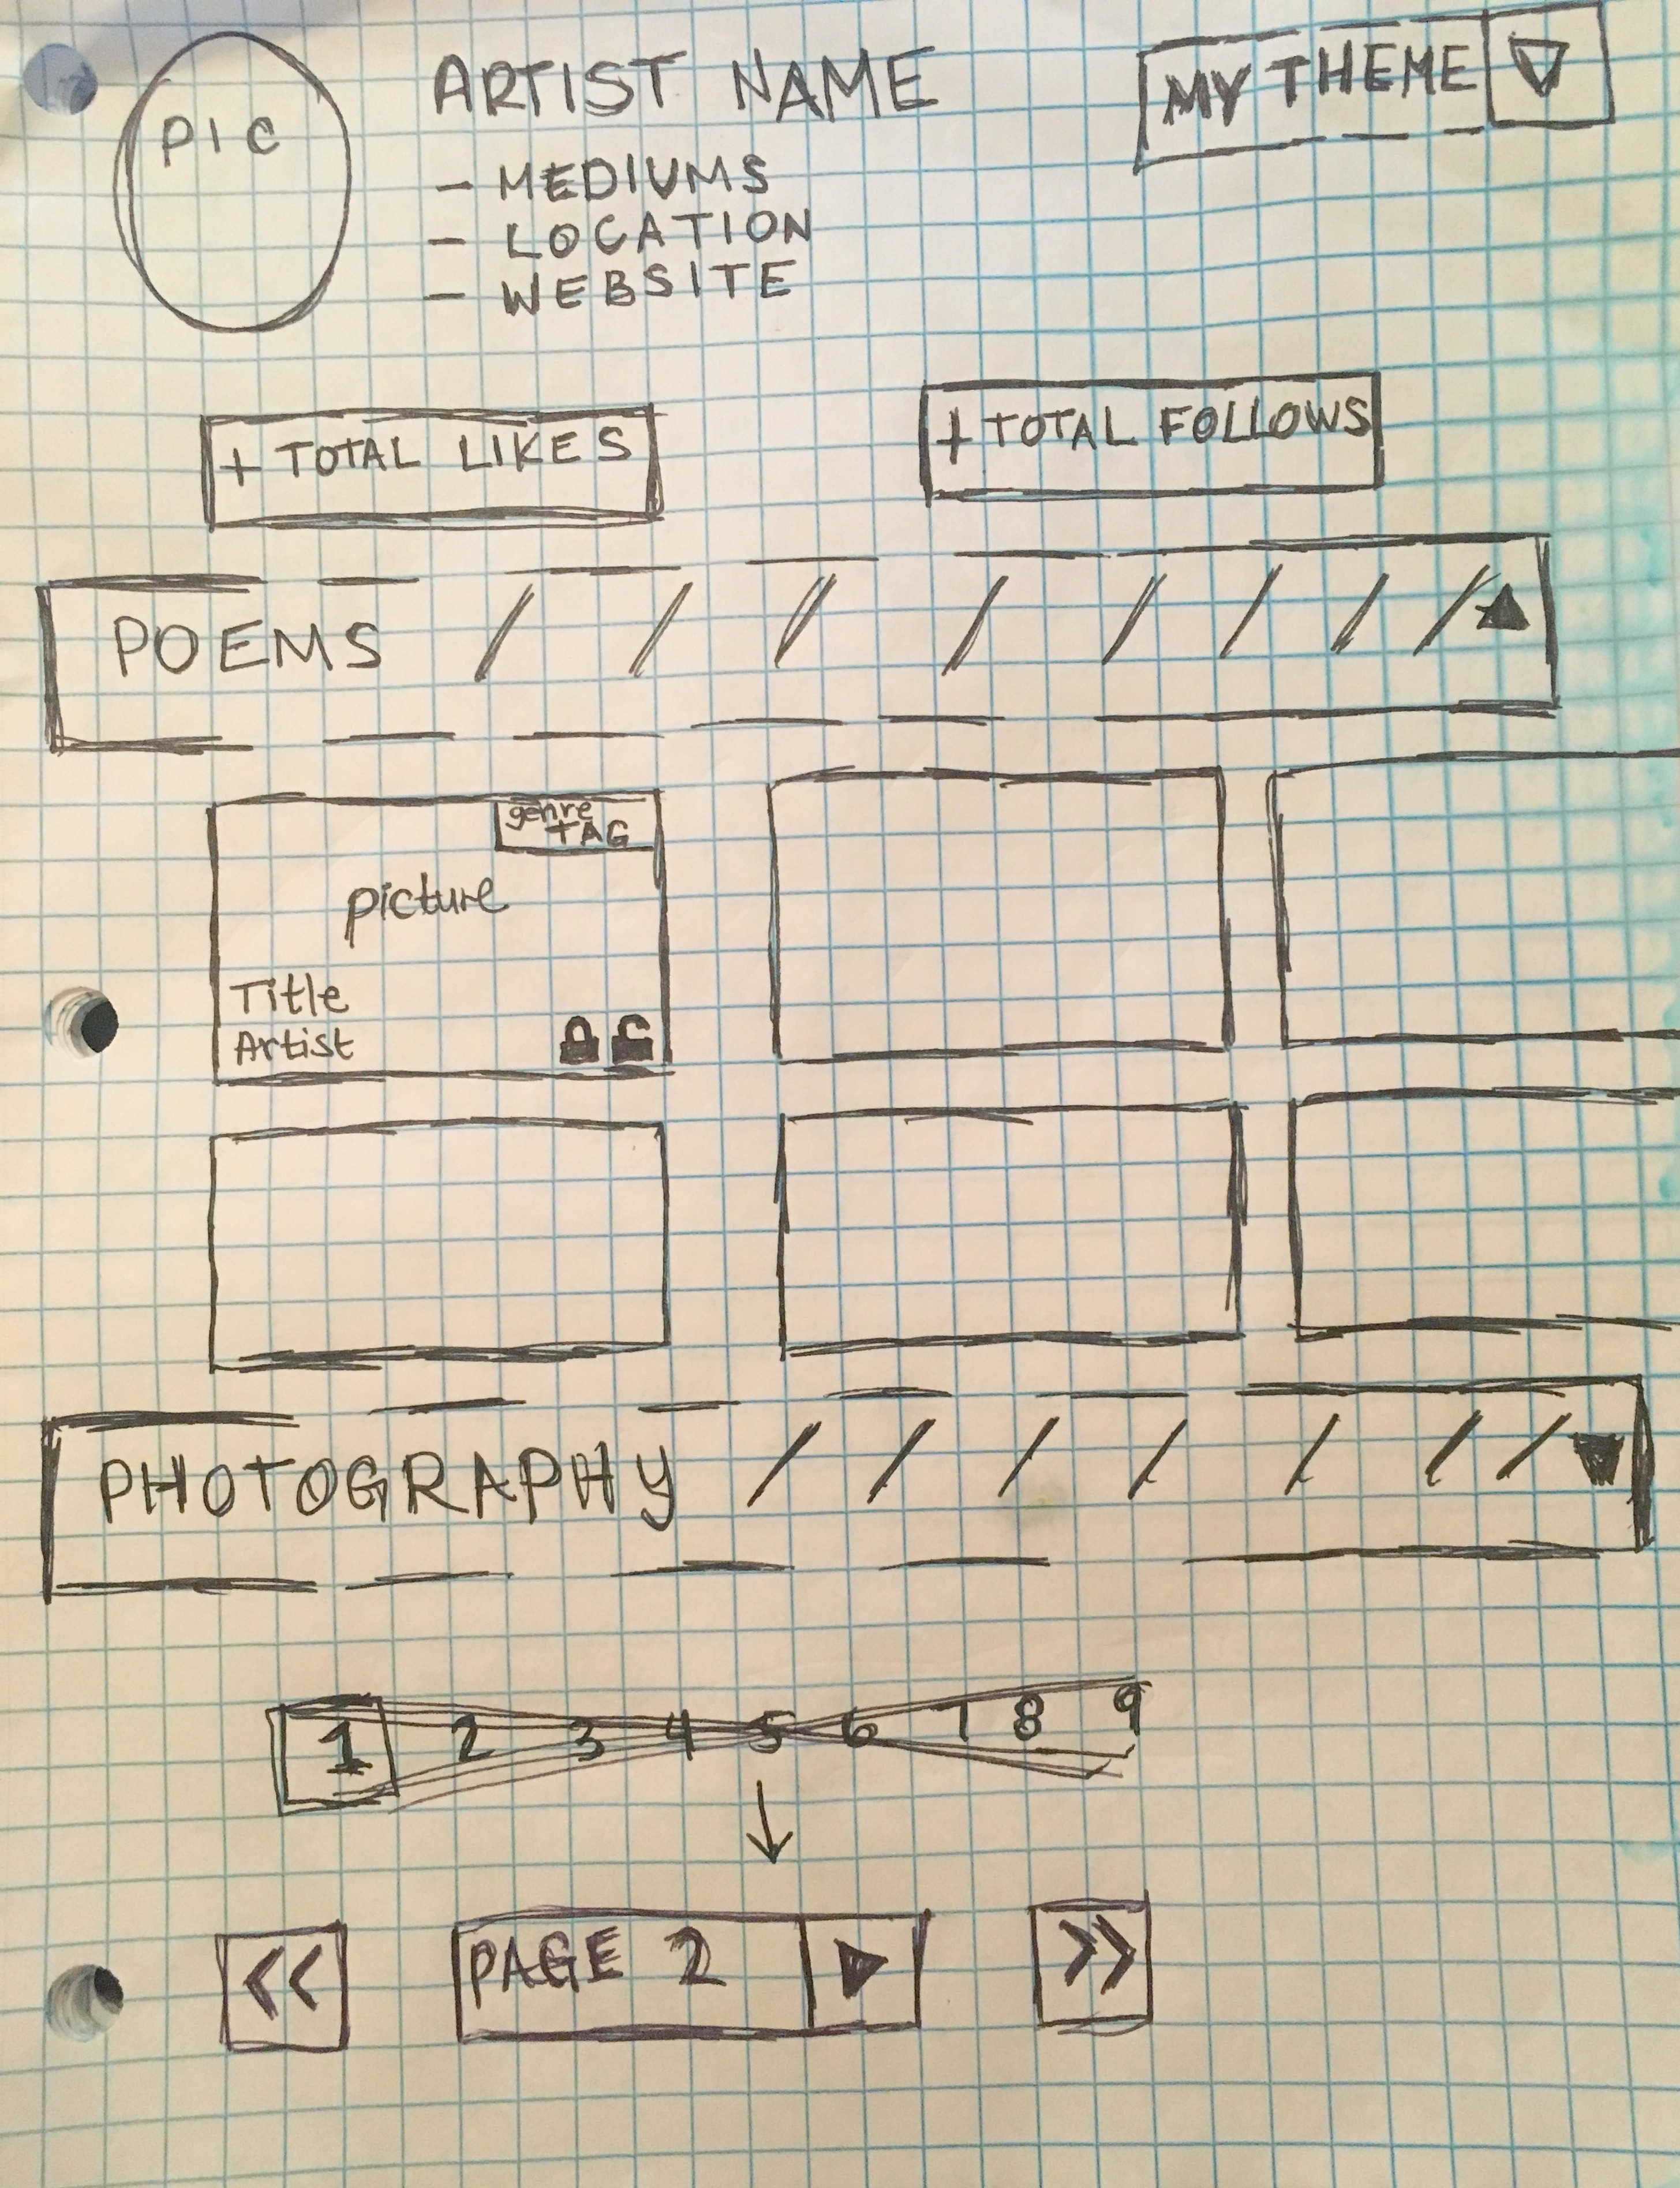 PIC
ARTIST NAME
- MEDIUMS
- LOCATION
- WEBSITE
MY THEME
+ TOTAL LIKES
+ TOTAL FOLLOWS
POEMS / / / / / / / /
genre
TAG
picture
Title
Artist
PHOTOGRAPHY / / / / / / /
1 2 3 4 5 6 7 8 9
<< PAGE 2 >>